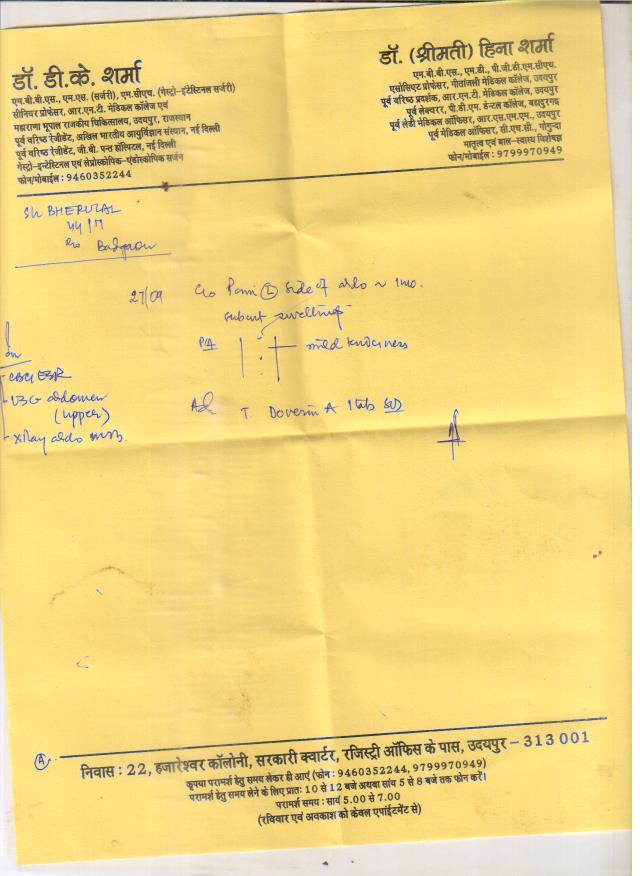 डॉ. डी.के. शर्मा
एम.बी.बी.एस., एम.एस. (सर्जरी), एम.सीएच. (गेस्ट्रो-इंटेस्टिनल सर्जरी)
सीनियर प्रोफेसर, आर.एन.टी. मेडिकल कॉलेज एवं
महाराणा भूपाल राजकीय चिकित्सालय, उदयपुर, राजस्थान
पूर्व वरिष्ठ रेजीडेंट, अखिल भारतीय आयुर्विज्ञान संस्थान, नई दिल्ली
पूर्व वरिष्ठ रेजीडेंट, जी.बी. पन्त हॉस्पिटल, नई दिल्ली
गेस्ट्रो-इन्टेस्टिनल एवं लेप्रोस्कोपिक-एंडोस्कोपिक सर्जन
फोन/मोबाईल : 9460352244
डॉ. (श्रीमती) हिना शर्मा
एम.बी.बी.एस., एम.डी., पी.जी.डी.एम.सीएच.
एसोसिएट प्रोफेसर, गीतांजली मेडिकल कॉलेज, उदयपुर
पूर्व वरिष्ठ प्रदर्शक, आर.एन.टी. मेडिकल कॉलेज, उदयपुर
पूर्व लेक्चरर, पी.डी.एम. डेन्टल कॉलेज, बहादुरगढ़
पूर्व लेडी मेडिकल ऑफिसर, आर.एस.एम.एम., उदयपुर
पूर्व मेडिकल ऑफिसर, सी.एच.सी., गोगुन्दा
मातृत्व एवं बाल-स्वास्थ्य विशेषज्ञ
फोन/मोबाईल : 9799970949
Sh BHERULAL
44/M
R/o Badgaon
27/09 C/o Pain (L) side of abdo ~ 1mo.
subcut swellings
P/A mild tenderness
Inv
- CBC, ESR
- USG abdomen
(upper)
- XRay abdo
Adv T.
1 tab
A
निवास : 22, हजारेश्वर कॉलोनी, सरकारी क्वार्टर, रजिस्ट्री ऑफिस के पास, उदयपुर - 313 001
कृपया परामर्श हेतु समय लेकर ही आएं (फोन : 9460352244, 9799970949)
परामर्श हेतु समय लेने के लिए प्रातः 10 से 12 बजे अथवा सांय 5 से 8 बजे तक फोन करें।
परामर्श समय : सायं 5.00 से 7.00
(रविवार एवं अवकाश को केवल एपाईंटमेंट से)